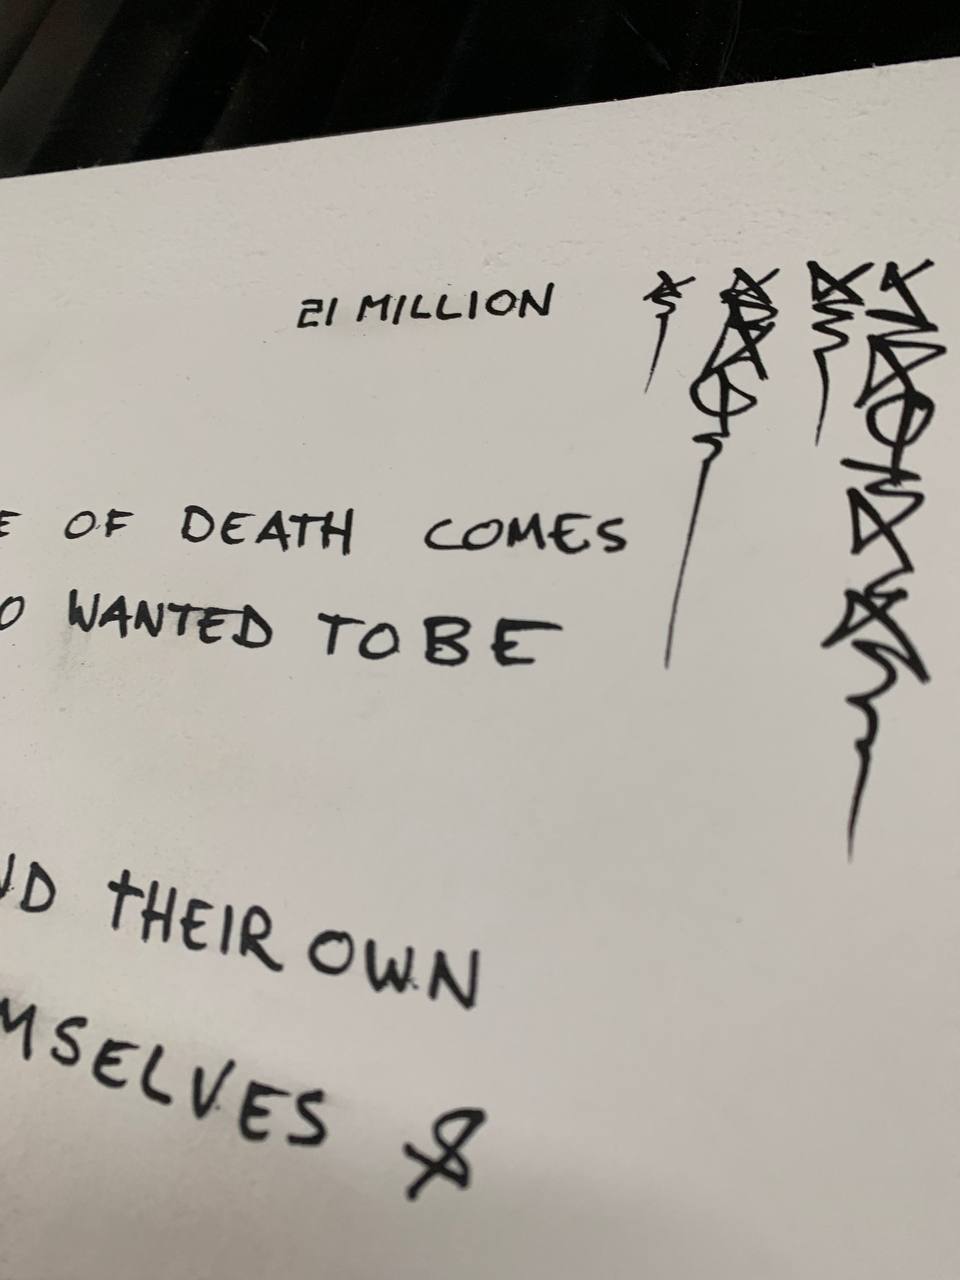 21 MILLION
OF DEATH COMES
WANTED TO BE
THEIR OWN
MSELVES &